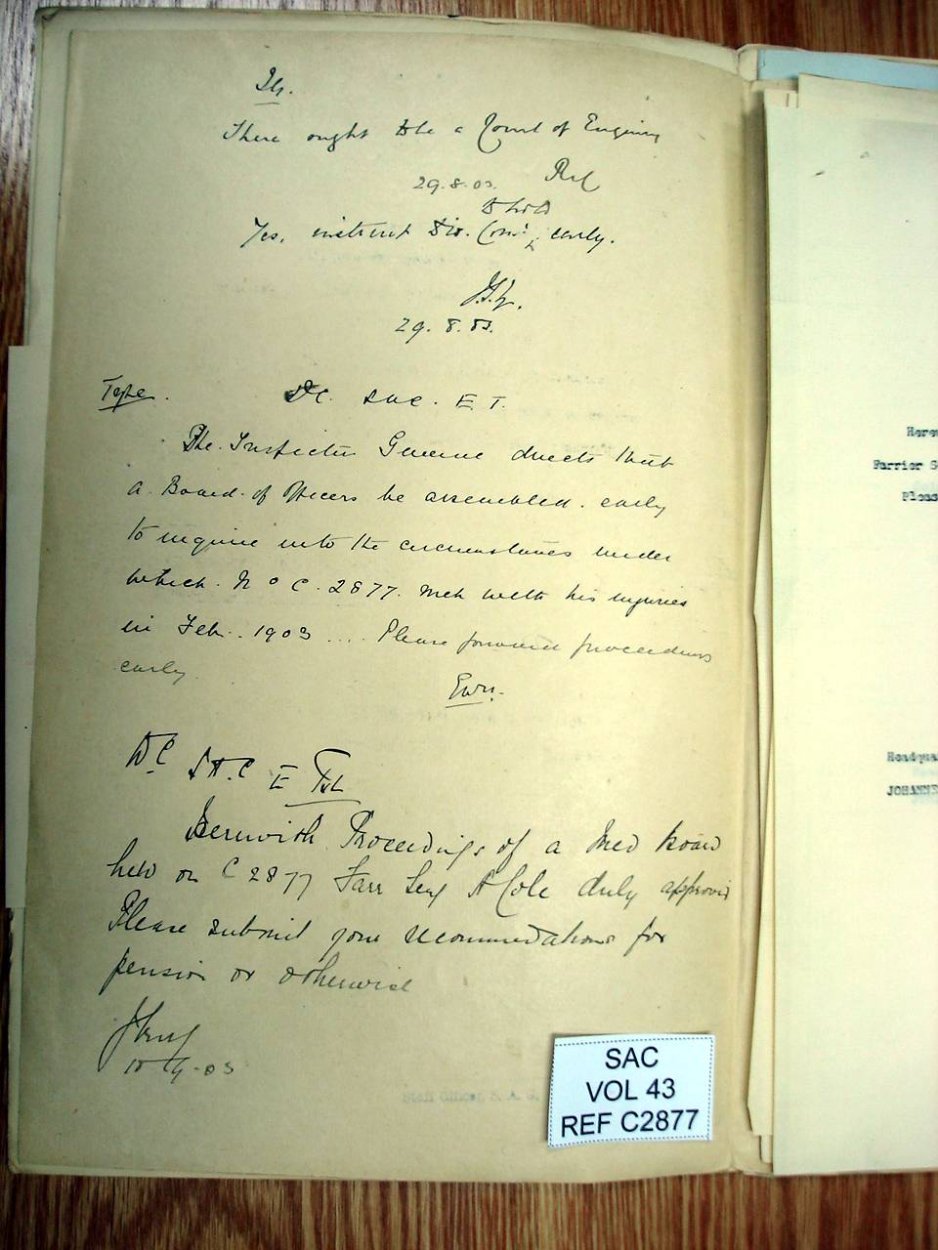 There ought to be a Court of Enquiry
29.8.03.
Yes, instruct Div. Com. early.
29. 8. 03.
Type. DC. SAC. E. T.
The Inspector General directs that
a Board of Officers be assembled. early
to inquire into the circumstances under
which. No C. 2877. met with his injuries
in Feb. 1903 .... Please forward proceedings
early.
DC SAC E
Herewith Proceedings of a Med Board
held on C 2877 Farr Serg A Cole duly approved
Please submit your recommendations for
pension or otherwise
Staff Officer S. A. C.
SAC
VOL 43
REF C2877
Farrier S
Pleas
Headqua
JOHANNE